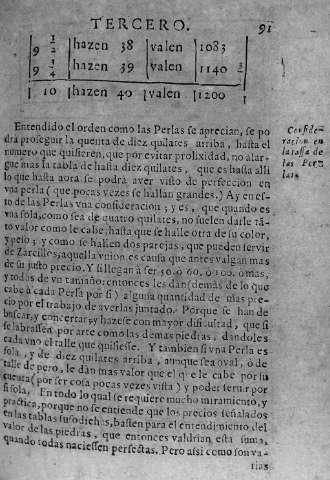 TERCERO. 91
9 1/2 hazen 38 valen 1083
9 3/4 hazen 39 valen 1140 3/4
10 hazen 40 valen 1200
Entendido el orden como las Perlas se aprecian, se po
drá proseguir la quenta de diez quilates arriba, hasta el
numero que quisieren, que por evitar prolixidad, no alar-
gue mas la tabla de hasta diez quilates, que es hasta alli
lo que hasta aora se podrá aver visto de perfeccion en
vna perla (que pocas vezes se hallan grandes.) Ay en es-
to de las Perlas vna consideracion; y es, que quando es
vna sola, como sea de quatro quilates, no suelen darle tã-
to valor como le cabe, hasta que se halle otra de su color,
y peso; y como se hallen dos parejas, que pueden servir
de Zarcillos, aquella vnion es causa que antes valgan mas
de su justo precio. Y si llegan à ser 50. ò 60. ò 100. ò mas,
y todas de vn tamaño: entonces les dan (demàs de lo que
cabe à cada Perla por si) alguna quantidad de mas pre-
cio por el trabajo de averlas juntado. Porque se han de
buscar, y concertar, y hazese con mayor dificultad, que si
se labrassen por arte como las demas piedras, dandoles
cada vno el talle que quisiesse. Y tambien si vna Perla es
sola, y de diez quilates arriba, aunque sea oval, ò de
talle de pero, le dan mas valor que el q̃ le cabe por la
cuenta (por ser cosa pocas vezes vista) y poder servir por
si sola. En todo lo qual se requiere mucho miramiento, y
practica, porque no se entiende que los precios señalados
en las tablas susodichas, basten para el entendimiento del
valor de las piedras, que entonces valdrian esta suma,
quando todas naciessen perfectas. Pero assi como son va-
rias
Conside-
racion en
la tassa de
las Per-
las.